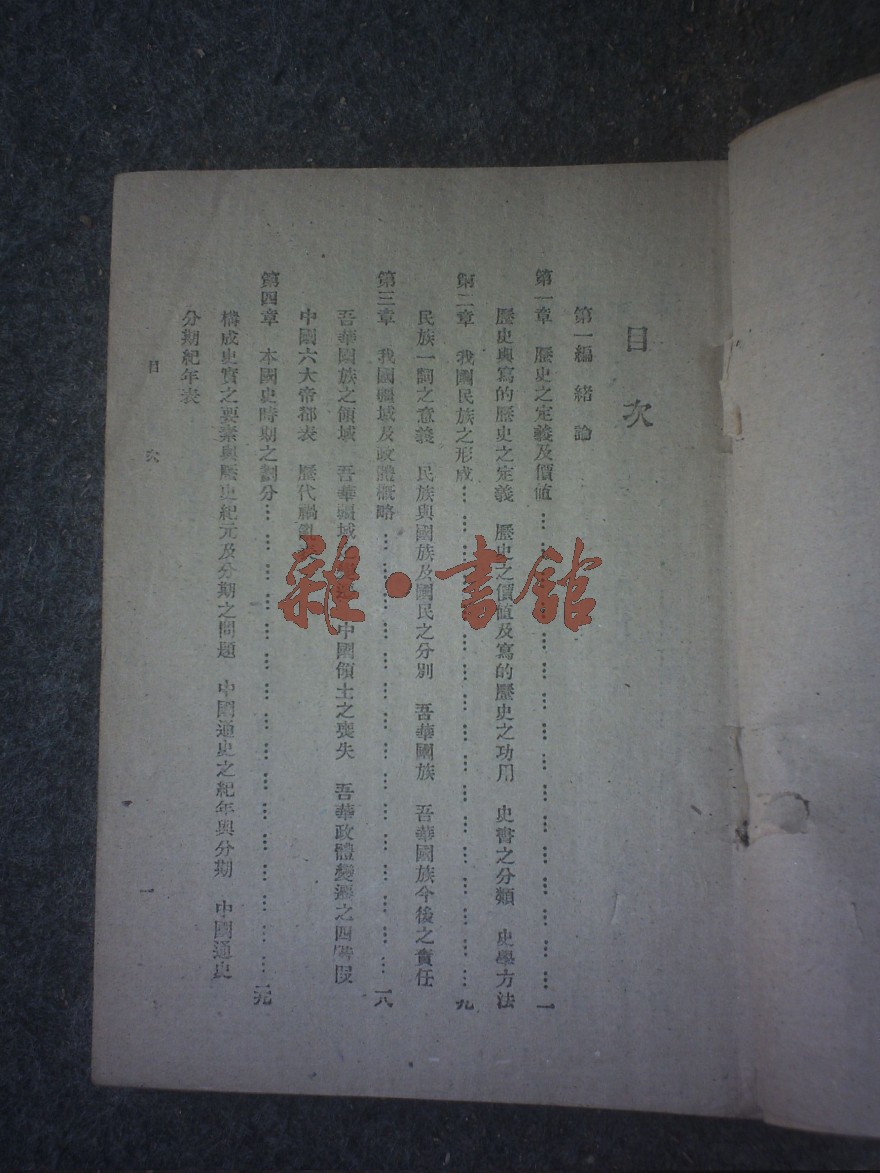 目次
第一編 緒論
第一章 歷史之定義及價值…………………………一
歷史與寫的歷史之定義 歷史之價值及寫的歷史之功用 史書之分類 史學方法
第二章 我國民族之形成…………………………九
民族一詞之意義 民族與國族及國民之分別 吾華國族 吾華國族今後之責任
第三章 我國疆域及政體概略…………………………一八
吾華國族之領域 吾華疆域 中國領土之喪失 吾華政體變遷之四階段
中國六大帝都表 歷代禍亂
第四章 本國史時期之劃分…………………………二九
構成史實之要素與歷史紀元及分期之問題 中國通史之紀年與分期 中國通史
分期紀年表
目次
一
雜·書館